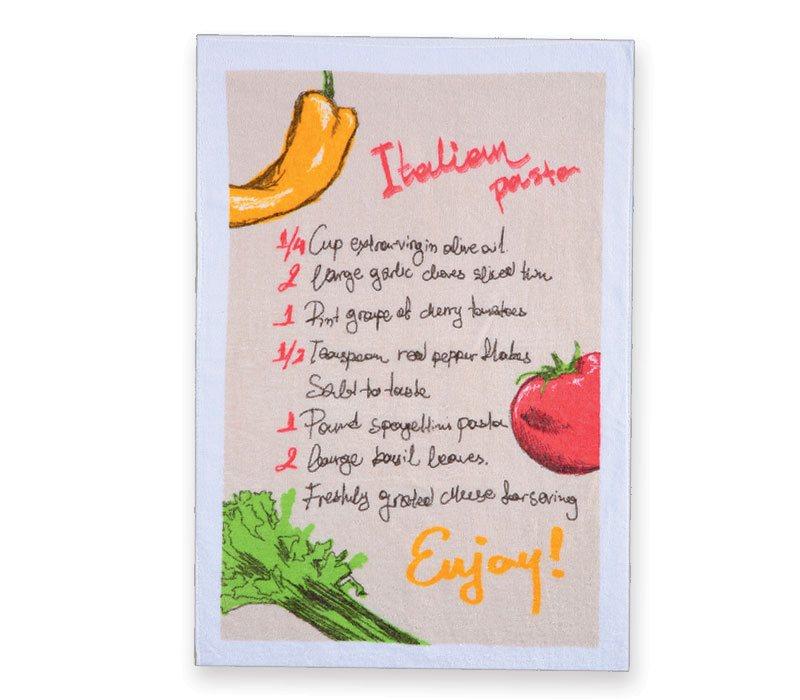 Italian
pasta
1/4 Cup extra-virgin olive oil.
2 large garlic cloves sliced thin
1 Pint grape of cherry tomatoes
1/2 Teaspoon red pepper flakes
Salt to taste
1 Pound spagettini pasta
2 Large basil leaves.
Freshly grated cheese for serving
Enjoy!